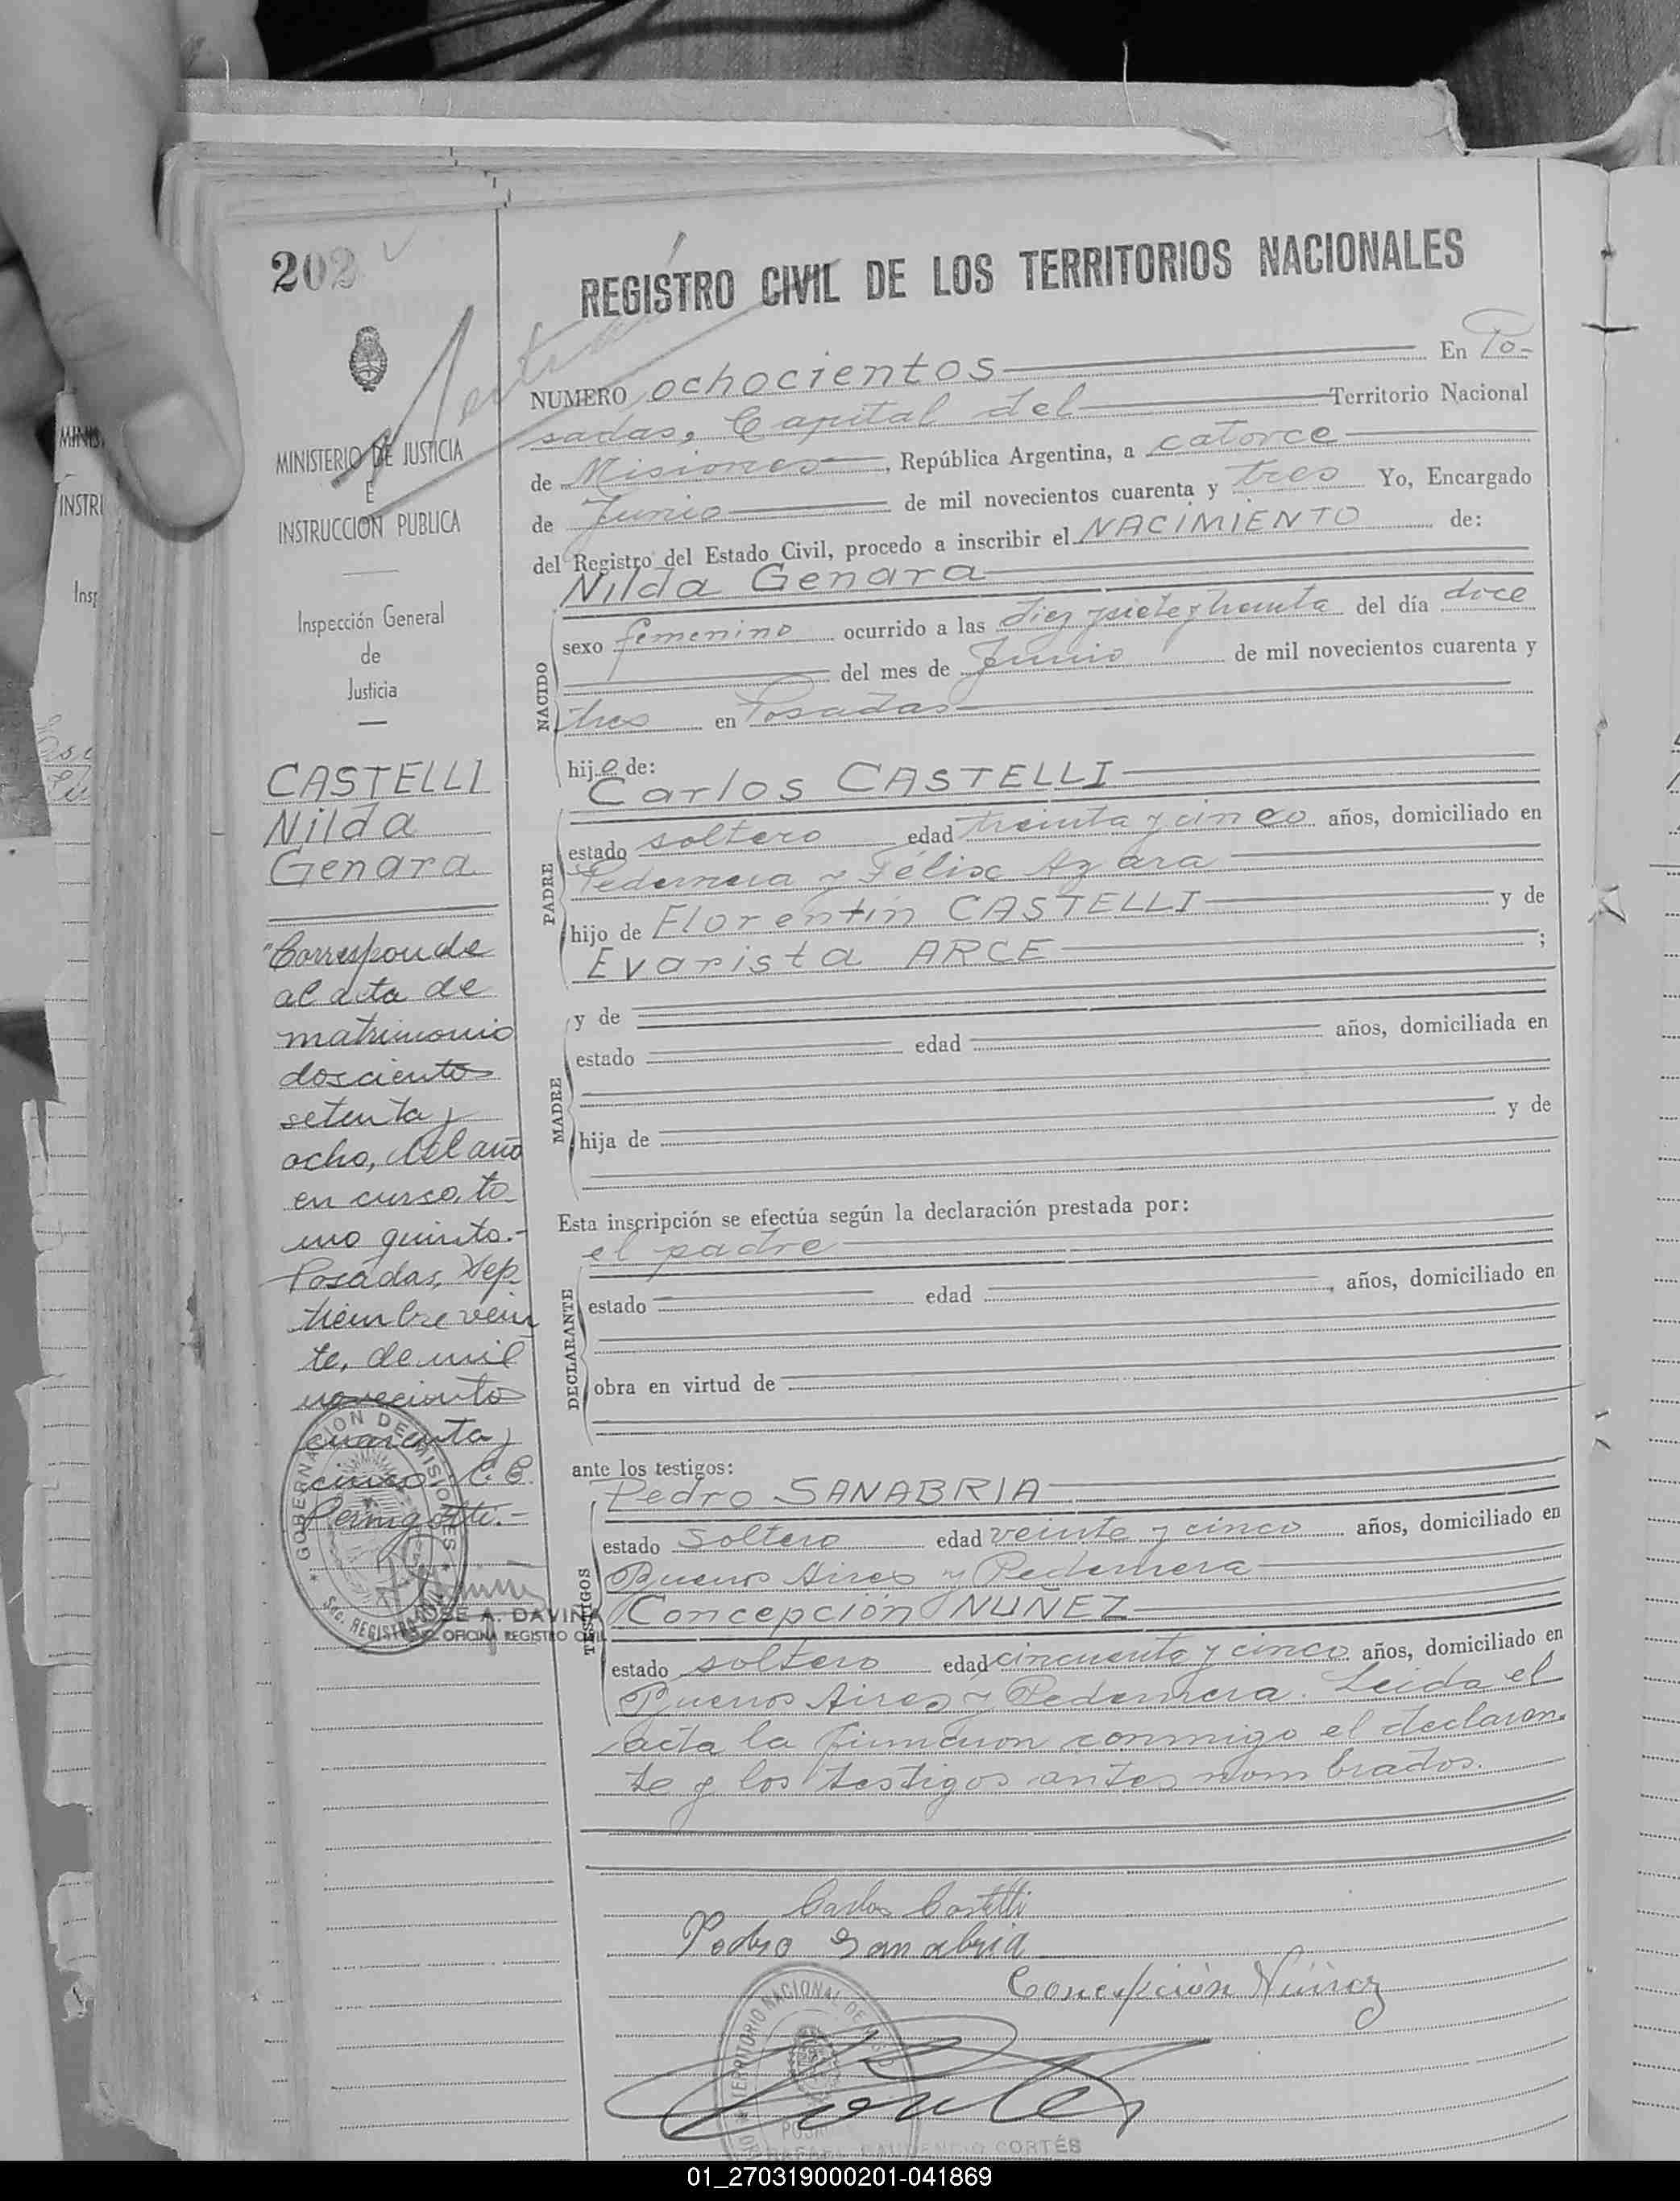 202
REGISTRO CIVIL DE LOS TERRITORIOS NACIONALES
MINISTERIO DE JUSTICIA
E
INSTRUCCION PUBLICA
Inspección General
de
Justicia
CASTELLI
Nilda
Genara
"Corresponde
al acta de
matrimonio
doscientos
setenta y
ocho, del año
en curso, to-
mo quinto.-
Posadas, Sep-
tiembre vein
te, de mil
novecientos
cuarenta y
cinco. C. C.
GOBERNACION DE MISIONES
JOSE A. DAVIÑA
OFICINA REGISTRO CIVIL
NUMERO ochocientos En Po-
sadas, Capital del Territorio Nacional
de Misiones, República Argentina, a catorce
de Junio de mil novecientos cuarenta y tres Yo, Encargado
del Registro del Estado Civil, procedo a inscribir el NACIMIENTO de:
NACIDO
Nilda Genara
sexo femenino ocurrido a las diez y siete y treinta del día doce
del mes de Junio de mil novecientos cuarenta y
tres en Posadas
hijo de:
PADRE
Carlos CASTELLI
estado soltero edad treinta y cinco años, domiciliado en
Pedernera y Félix Azara
hijo de Florentín CASTELLI y de
Evarista ARCE ;
MADRE
y de
estado edad años, domiciliada en
hija de y de
Esta inscripción se efectúa según la declaración prestada por:
DECLARANTE
el padre
estado edad , años, domiciliado en
obra en virtud de
ante los testigos:
TESTIGOS
Pedro SANABRIA
estado soltero edad veinte y cinco años, domiciliado en
Buenos Aires y Pedernera
Concepción NUÑEZ
estado soltero edad cincuenta y cinco años, domiciliado en
Buenos Aires y Pedernera. Leida el
acta la firmaron conmigo el declaran-
te y los testigos antes nombrados.
Carlos Castelli
Pedro Sanabria
Concepción Núñez
TERRITORIO NACIONAL DE
CORTÉS
01_270319000201-041869